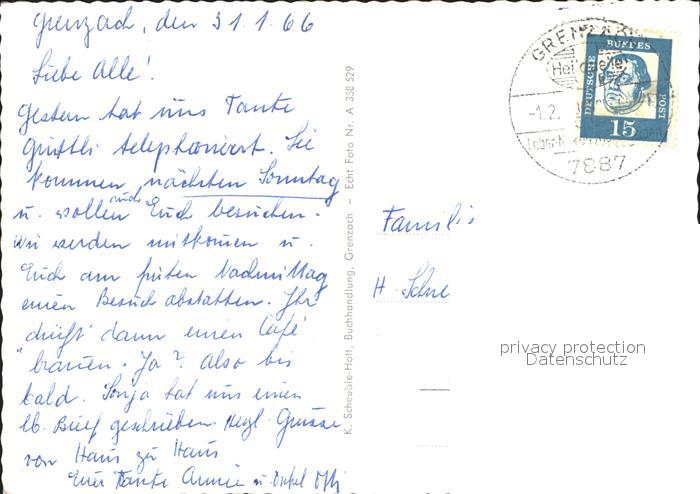 Grenzach, den 31.1.66
Liebe Alle!
Gestern hat uns Tante
Grittli telephoniert. Sie
kommen nächsten Sonntag
u. wollen auch Euch besuchen.
wir werden mitkommen u.
Euch am frühen Nachmittag
einen Besuch abstatten. Ihr
dürft dann einen Café
"brauen. Ja? Also bis
bald. Sonja hat uns einen
lb. Brief geschrieben. Herzl. Grüsse
von Haus zu Haus
Eure Tante Annie u. Onkel
K. Scheuble-Hott, Buchhandlung, Grenzach – Echt Foto Nr. A 358 529
GRENZACH
-1.2.
7887
DEUTSCHE BUNDESPOST
15
Familie
H. Schne
privacy protection
Datenschutz